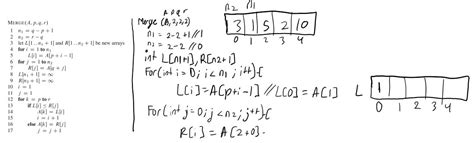 MERGE(A, p, q, r)
1 n₁ = q − p + 1
2 n₂ = r − q
3 let L[1..n₁ + 1] and R[1..n₂ + 1] be new arrays
4 for i = 1 to n₁
5 L[i] = A[p + i − 1]
6 for j = 1 to n₂
7 R[j] = A[q + j]
8 L[n₁ + 1] = ∞
9 R[n₂ + 1] = ∞
10 i = 1
11 j = 1
12 for k = p to r
13 if L[i] ≤ R[j]
14 A[k] = L[i]
15 i = i + 1
16 else A[k] = R[j]
17 j = j + 1
A p q r
Merge (A,2,2,2)
n₁ = 2-2+1//1
n₂ = 2-2 //0
int L[n1+1], R[n2+1]
For(int i=0; i<n₁; i++){
L[i]=A[p+i-1] //L[0]=A[1]
For(int j=0; j<n₂; j++){
R[i]=A[2+0].
n₂ n₁
3 1 5 2 10
0 1 2 3 4
L 1
0 1 2 3 4